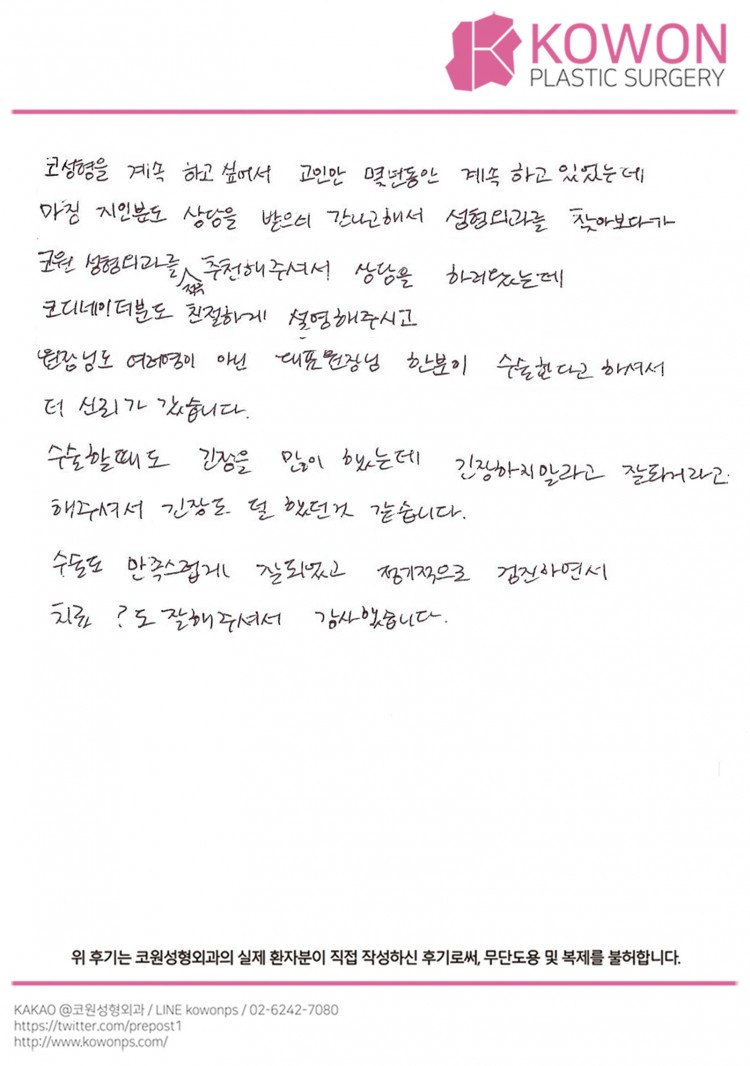 KOWON
PLASTIC SURGERY
코성형을 계속 하고 싶어서 고민만 몇년동안 계속 하고 있었는데
마침 지인분도 상담을 받으러 간다고해서 성형외과를 찾아보다가
코원 성형외과를 추천해주셔서 상담을 하러왔는데
코디네이더분도 친절하게 설명해주시고
원장님도 여러명이 아닌 대표원장님 한분이 수술한다고 하셔서
더 신뢰가 갔습니다.
수술할때도 긴장을 많이 했는데 긴장하지말라고 잘되거라고
해주셔서 긴장도 덜 했던것 같습니다.
수술도 만족스럽게 잘되었고 정기적으로 검진하면서
치료 ?도 잘해주셔서 감사했습니다.
위 후기는 코원성형외과의 실제 환자분이 직접 작성하신 후기로써, 무단도용 및 복제를 불허합니다.
KAKAO @코원성형외과 / LINE kowonps / 02-6242-7080
https://twitter.com/prepost1
http://www.kowonps.com/